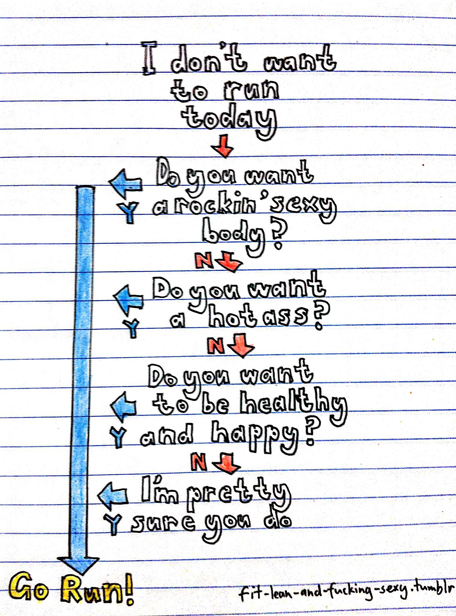 I don't want
to run
today
Do you want
Y a rockin' sexy
body?
N
Do you want
Y a hot ass?
N
Do you want
to be healthy
Y and happy?
N
I'm pretty
Y sure you do
Go Run!
fit-lean-and-fucking-sexy.tumblr